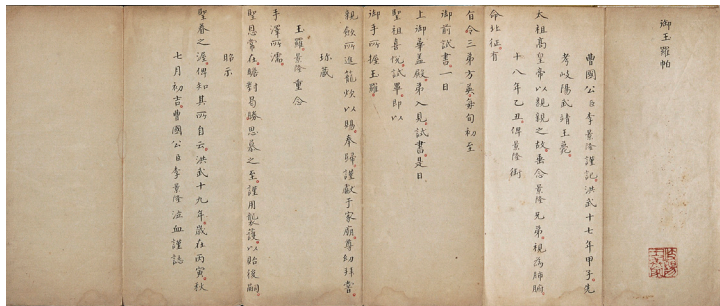 御玉羅帕
曹國公臣李景隆謹記洪武十七年甲子先
考岐陽武靖王薨
太祖高皇帝以親親之故垂念景隆兄弟視為肺腑
十八年乙丑俾景隆銜
命北征有
旨令三弟芳英每旬初至
御前試書一日
上御華蓋殿弟入見試書是日
聖祖喜悅試畢即以
御手所握玉羅
親飲所進龍炊以賜奉歸謹獻于家廟尊幼拜嘗
珍藏
玉羅景隆重念
手澤所濡
聖恩常在瞻對曷勝思慕之至謹用襲護以貽後嗣
昭示
聖眷之渥俾知其所自云洪武十九年歲在丙寅秋
七月初吉曹國公臣李景隆泣血謹誌